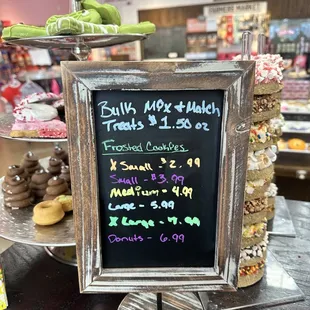 Bulk Mix + Match
Treats $1.50 oz
Frosted Cookies
X Small - $2.99
Small - $3.99
Medium - 4.99
Large - 5.99
X Large - 7.99
Donuts - 6.99